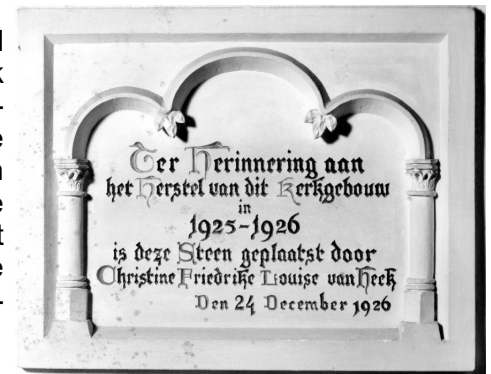 Ter Herinnering aan
het Herstel van dit Kerkgebouw
in
1925-1926
is deze Steen geplaatst door
Christine Friedrike Louise van Heek
Den 24 December 1926